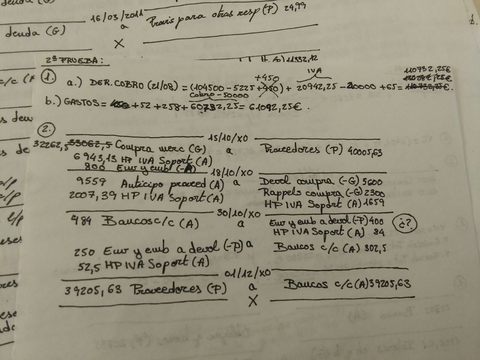 deuda (G)
16/03/2011
a Provis para otras resp (P) 29,99
X
deuda (G)
2ª PRUEBA:
+450
IVA
110932,25€
1. a.) DER. COBRO (21/08) = (104500-5225+450) + 20942,25 - 20000 +65=
Cobro-50000
b.) GASTOS = +52+258+60782,25= 61092,25€.
2.
15/10/X0
32262,5 33062,5 Compra merc (G) a Proveedores (P) 40005,63
6943,13 HP IVA Soport (A)
800 Env y emb (A)
18/10/X0
9559 Anticipo proveed (A) a Devol compra (-G) 5600
2007,39 HP IVA Soport (A) Rappels compra (-G) 2300
HP IVA Soport (A) 1659
30/10/X0
484 Bancos c/c (A) a Env y emb a devol (-P) 400 ¿?
HP IVA Soport (A) 84
250 Env y emb a devol (-P) a Bancos c/c (A) 302,5
52,5 HP IVA Soport (A)
01/12/X0
39205,63 Proveedores (P) a Bancos c/c (A) 39205,63
X